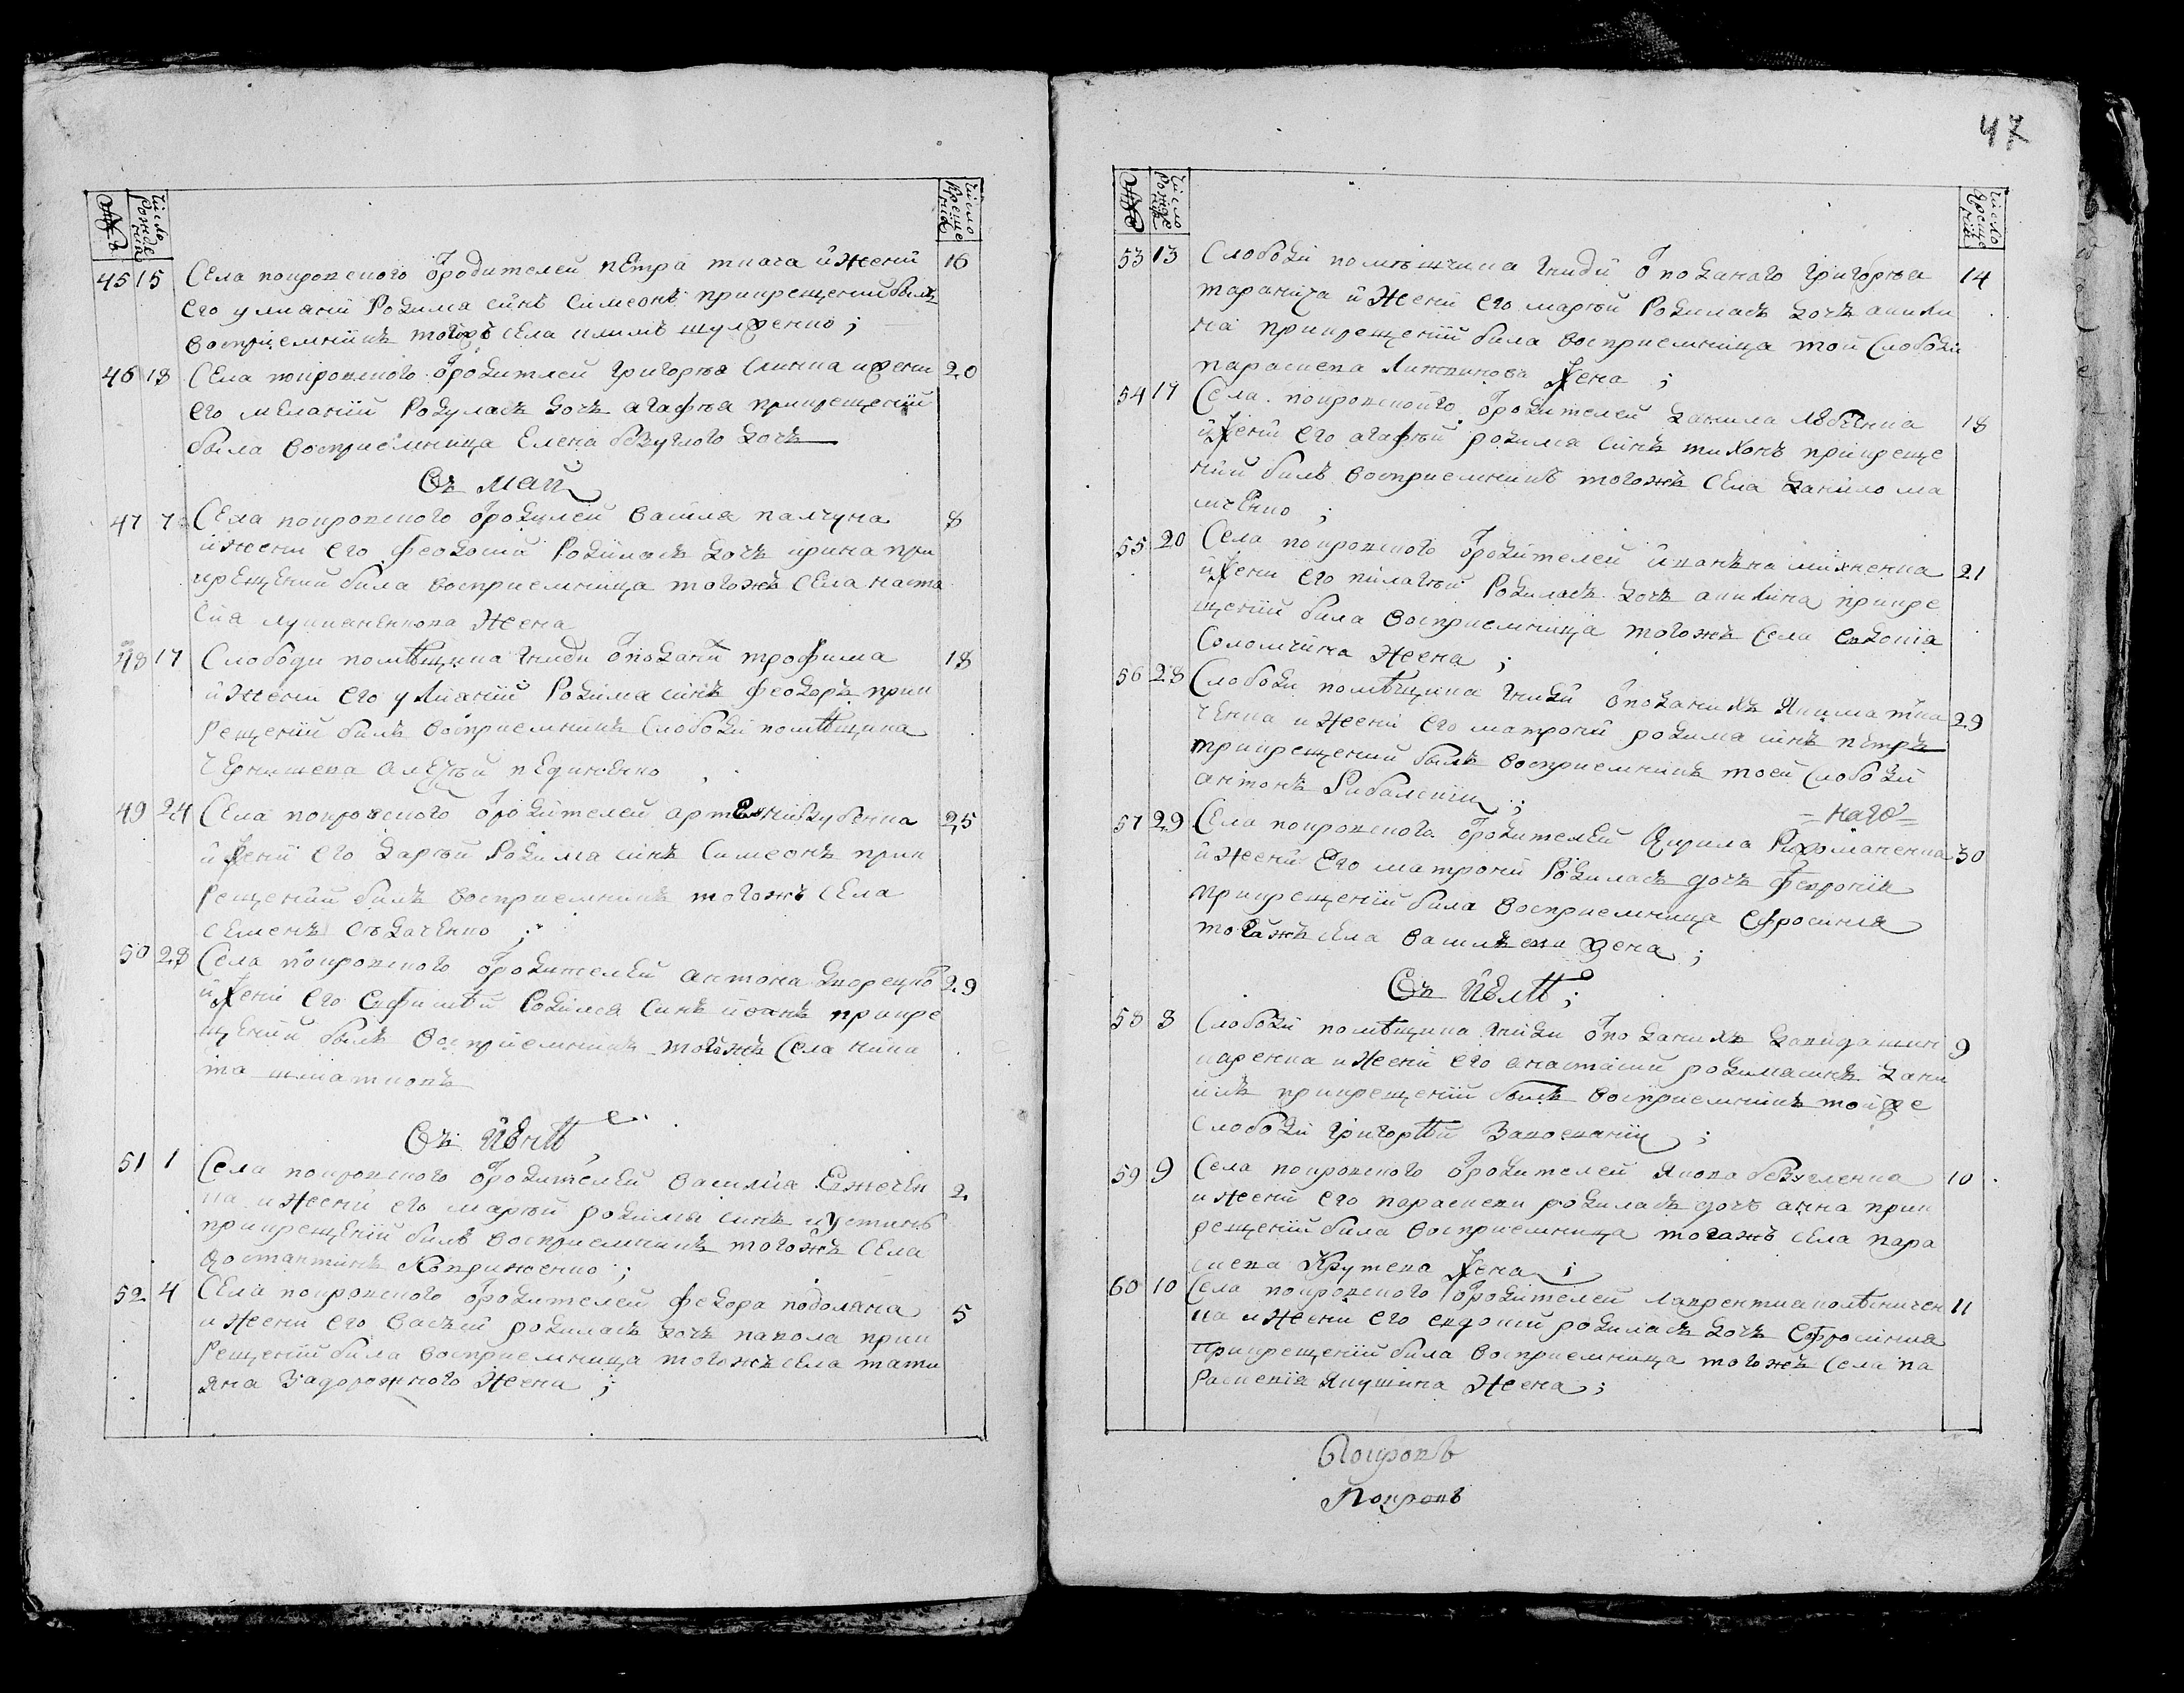 Число рожде ния
Число креще ния
45 15 Села покровского ѿ родителей петра ткача и жени 16
его улияни родился синъ симеонъ при крещении былъ
восприемникъ тогожъ села климъ шулженко ;
46 18 Села покровского ѿ родителей григорія слинка и жени 20
его меланіи родилась дочь агафія при крещеніи
была восприемница Елена безуглого дочь
въ маи
47 7 Села покровского ѿ родителей василя палчуна 8
и жени его феодосіи родилась дочь ирина при
крещении била восприемница тогожъ села наста
сия лукианенкова жена
48 17 Слободи помѣщика гниди ѿ подани трофима 18
и жени его улияніи родился синъ феодоръ при к
рещеніи билъ восприемникъ слободи помѣщика
Чернишева алеѯѣй педиченко
49 24 Села покровского ѿ родителей артемия зубенка 25
и жени его дарѣи родился синъ симеонъ при к
рещеніи билъ восприемникъ тогожъ села
семенъ седаченко ;
50 28 Села покровского ѿ родителей антона дворецко 29
и жени его евфимѣи родился синъ иоанъ при кре
щеніи былъ восприемникъ тогожъ села мики
та шматковъ
въ июнѣ
51 1 Села покровского ѿ родителей василия Ежечен 2
ка и жени его марѣи родился синъ иустинъ
при крещеніи билъ восприемникъ тогожъ села
костантинъ Коприженко ;
52 4 Села покровского ѿ родителей федора подоляна 5
и жени его васѣи родилась дочь павола при к
рещеніи била восприемница тогожъ села тати
яна Задорожного жена ;
47
Число рожде нія
Число креще нія
53 13 Слободи помѣщика гниди ѿ поданаго григорѣа 14
тараника и жени его марѣи родилась дочь акили
на при крещеніи била восприемница той слободи
параскева Литвинова жена ;
54 17 Села покровского ѿ родителей данила лобченка 18
и жени его агафѣи родился синъ тихонъ при креще
ніи билъ восприемникъ тогожъ села данило ма
мченко ;
55 20 Села покровского ѿ родителей иоанна михненка 21
и жени его пилагѣи родилась дочь акилина при кре
щеніи била восприемница тогожъ села евдокія
соломчина жена ;
56 28 Слободи помѣщика гниди ѿ поданихъ Якима тка 29
ченка и жени его матрони родился синъ петръ
при крещении былъ восприемникъ тоей слободи
антонъ Рибалский ;
57 29 Села покровского ѿ родителей кирила Рихоманенка 30
= наго =
и жени его матрони родилась дочь феврония
при крещеніи била восприемница ефросиния
тогожъ села василѣева жена ;
въ июлѣ ;
58 8 Слободи помѣщика гниди ѿ поданихъ давида шин 9
каренка и жени его анастасіи родился синъ дани
илъ при крещеніи былъ восприемникъ тойже
слободи григорѣй Закосканый ;
59 9 Села покровского ѿ родителей якова безугленка 10
и жени его параскеви родилась дочь анна при к
рещеніи била восприемница тогожъ села пара
скева Крутева жена ;
60 10 Села покровского ѿ родителей лаврентия колѣсничен 11
ка и жени его евдокии родилась дочь ефросиния
при крещеніи била восприемница тогожъ села па
раскевия якушина жена ;
Покровъ
Покровъ